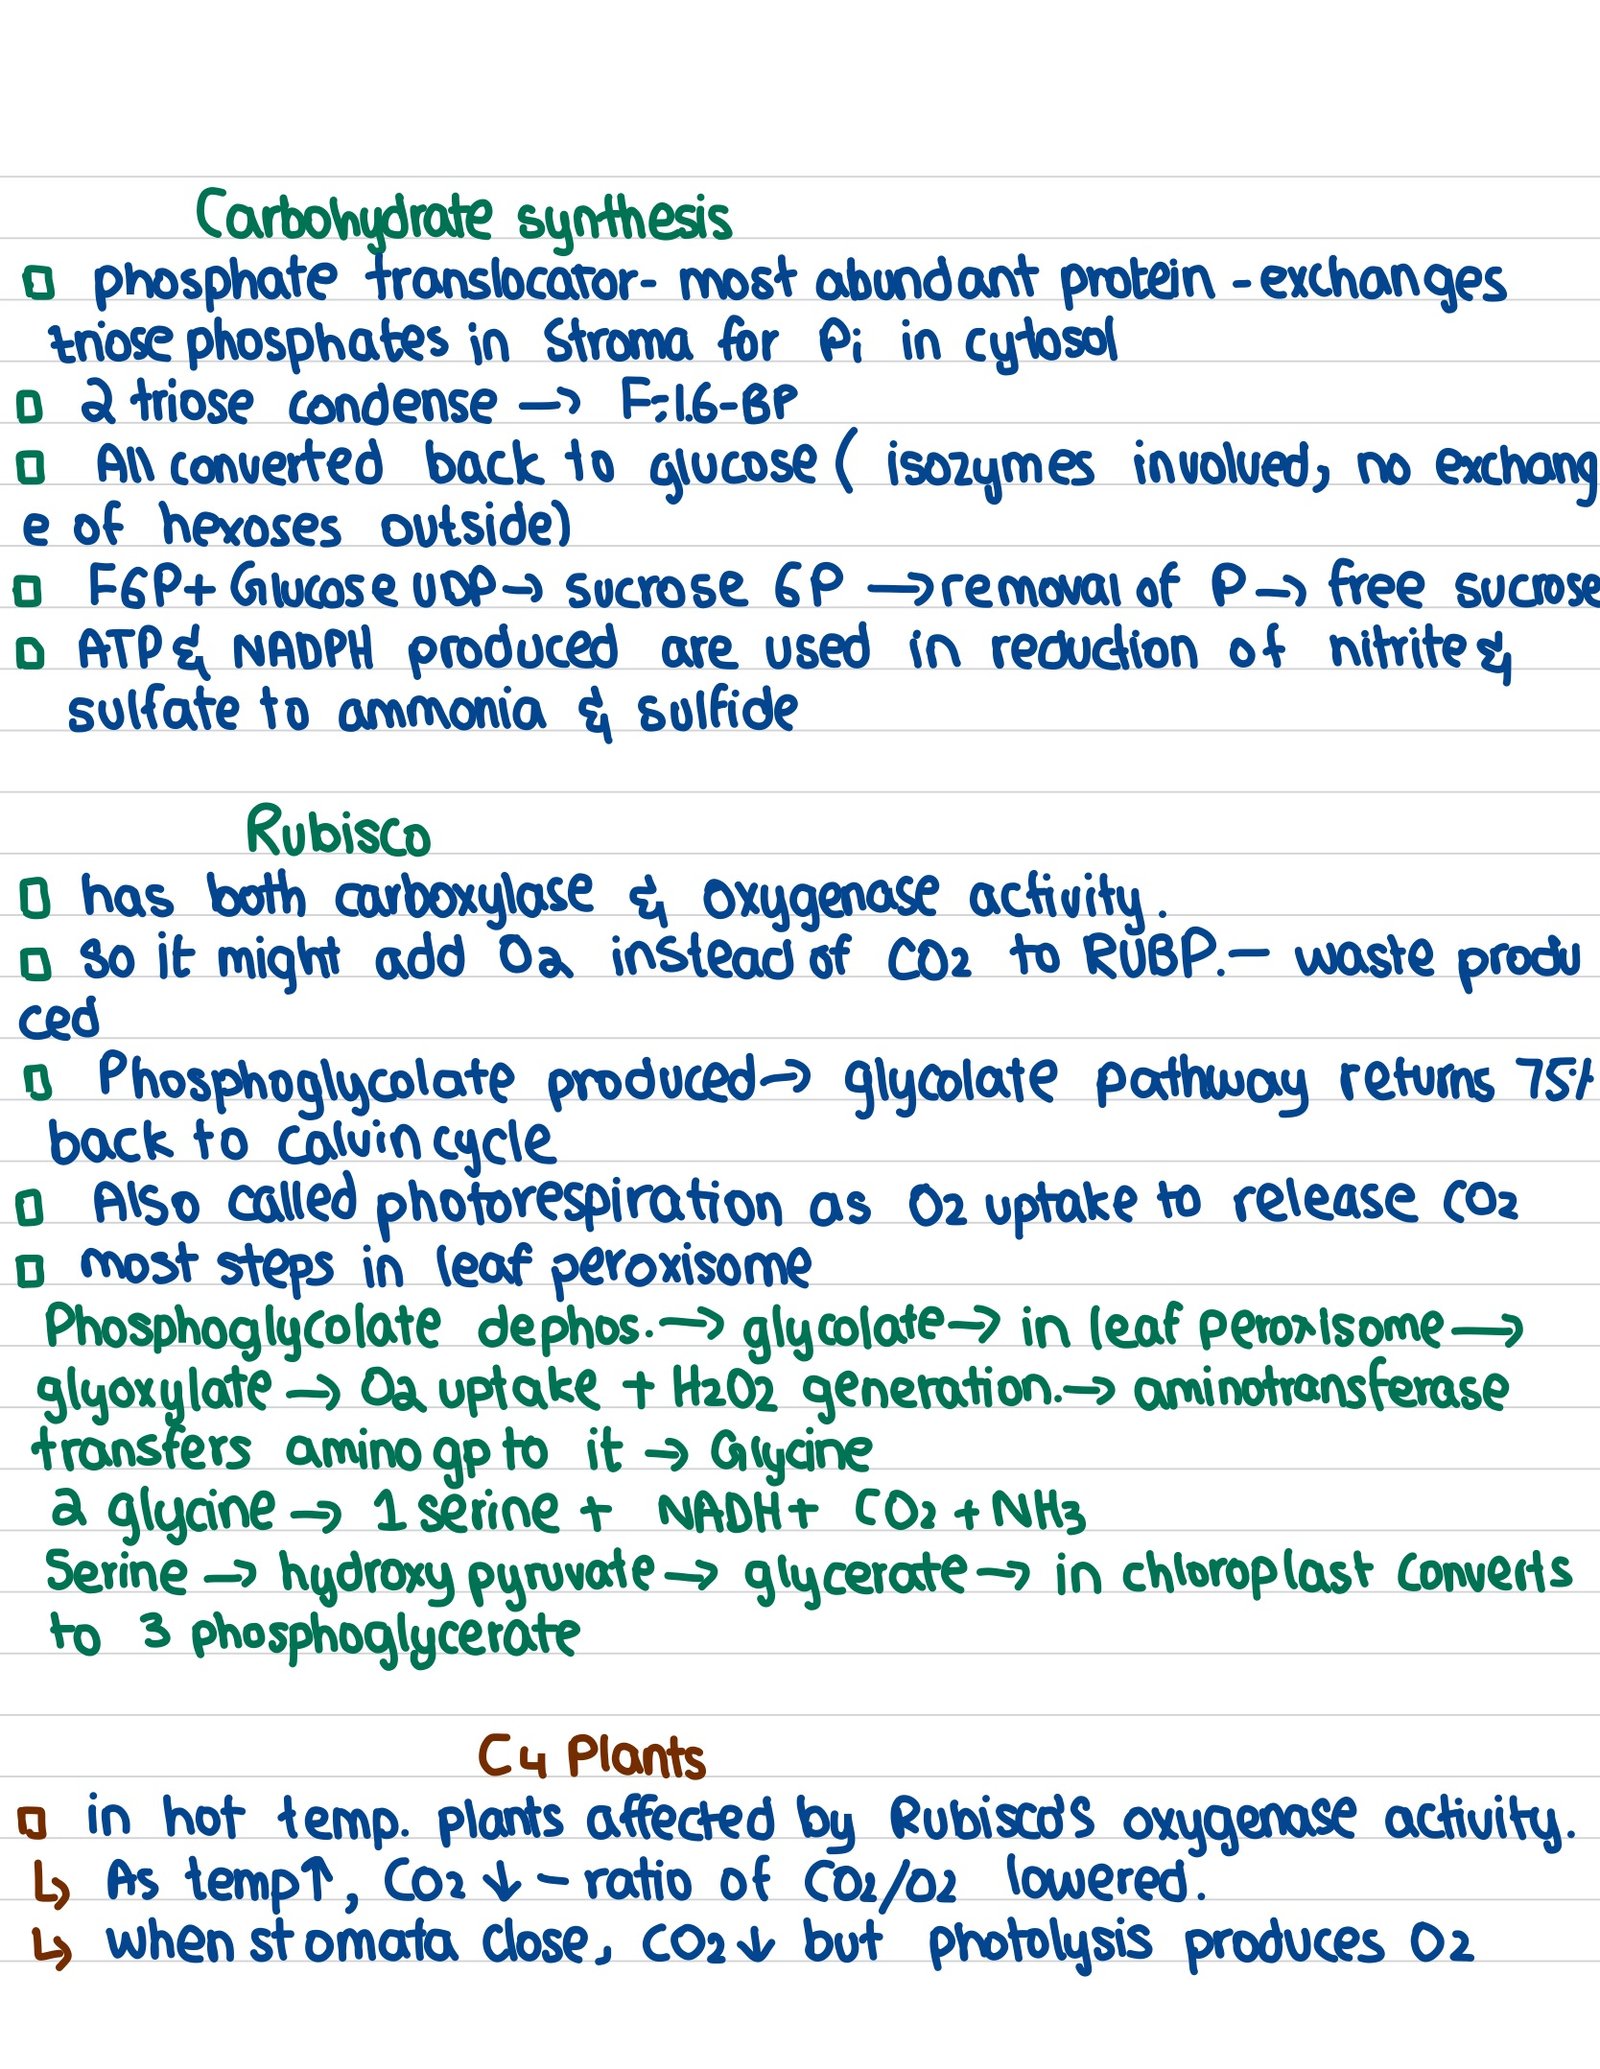 Carbohydrate synthesis
phosphate translocator- most abundant protein - exchanges
triose phosphates in stroma for Pi in cytosol
2 triose condense → F-1.6-BP
All converted back to glucose ( isozymes involved, no exchang
e of hexoses outside)
F6P + Glucose UDP → sucrose 6P → removal of P → free sucrose
ATP & NADPH produced are used in reduction of nitrite &
sulfate to ammonia & sulfide
Rubisco
has both carboxylase & oxygenase activity.
so it might add O2 instead of CO2 to RUBP. - waste produ
ced
Phosphoglycolate produced → glycolate pathway returns 75%
back to calvin cycle
Also called photorespiration as O2 uptake to release CO2
most steps in leaf peroxisome
Phosphoglycolate dephos. → glycolate → in leaf peroxisome →
glyoxylate → O2 uptake + H2O2 generation. → aminotransferase
transfers amino gp to it → Glycine
2 glycine → 1 serine + NADH + CO2 + NH3
Serine → hydroxy pyruvate → glycerate → in chloroplast converts
to 3 phosphoglycerate
C4 Plants
in hot temp. plants affected by Rubisco's oxygenase activity.
↳ As temp↑, CO2 ↓ - ratio of CO2/O2 lowered.
↳ when stomata close, CO2 ↓ but photolysis produces O2